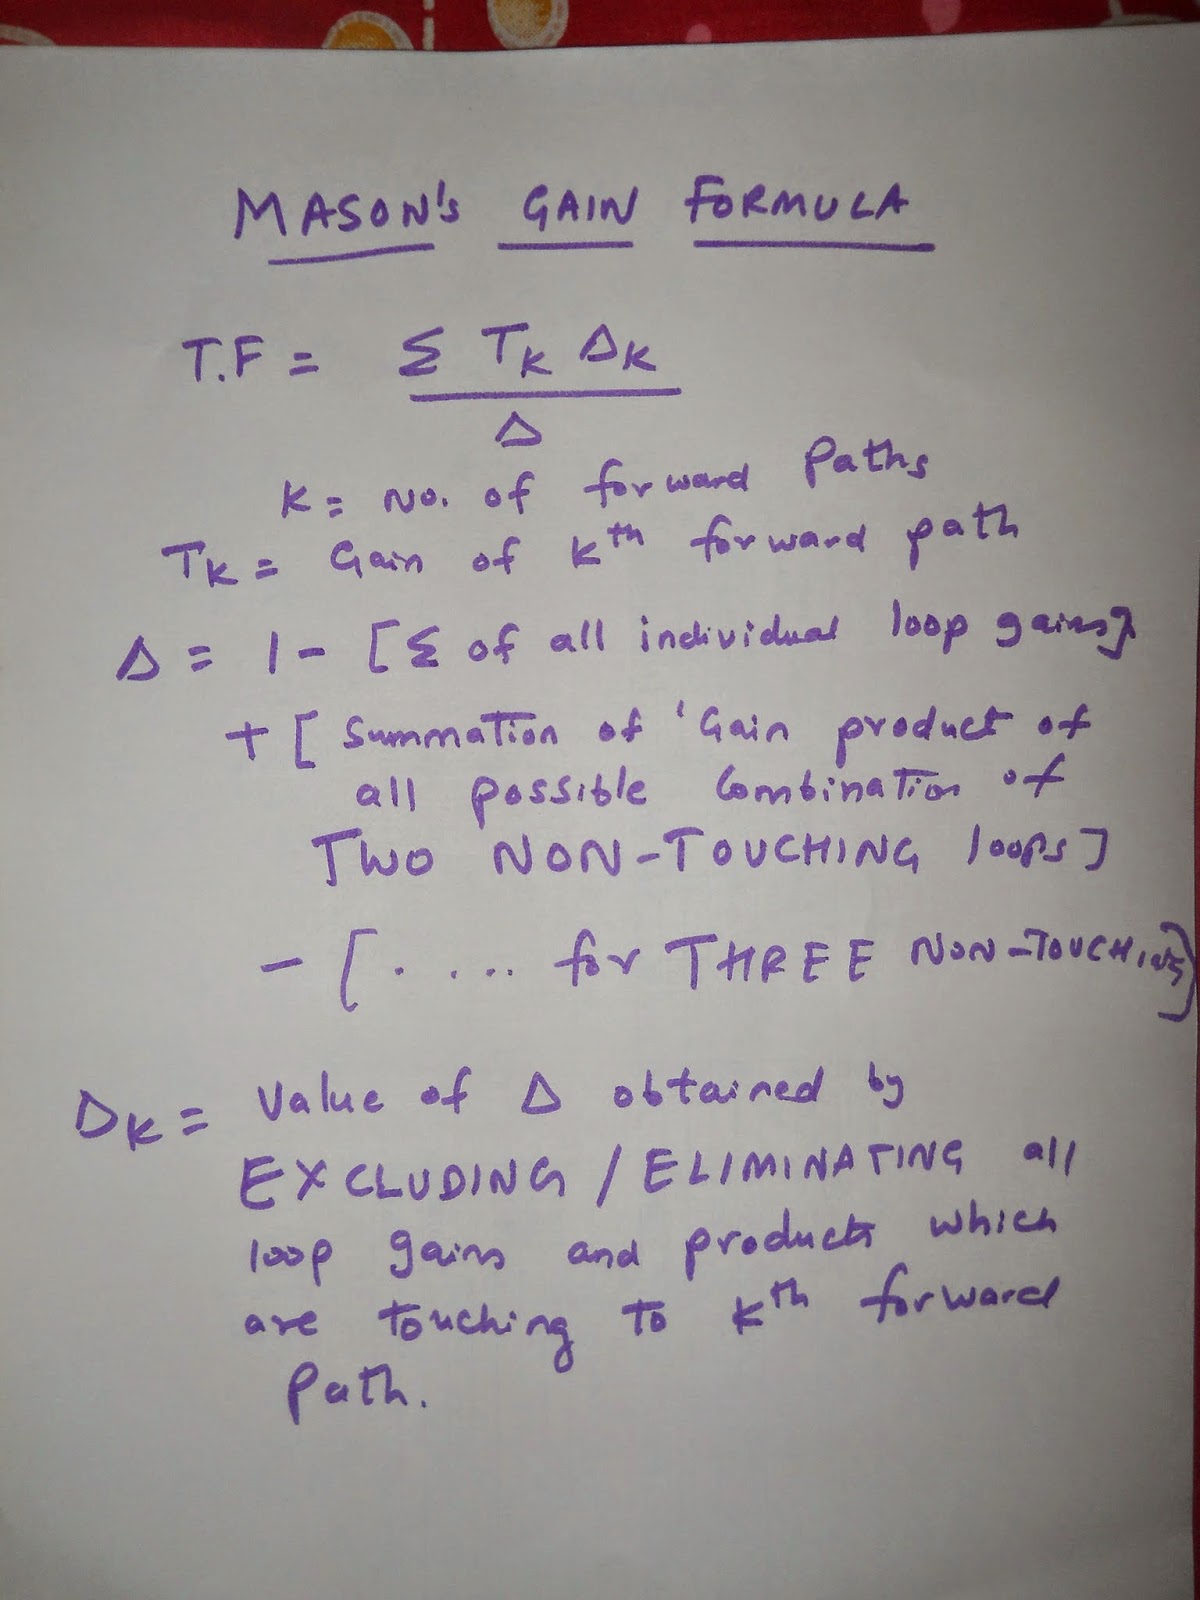 MASON's GAIN FORMULA
T.F = Σ TK ΔK
Δ
K = No. of forward Paths
TK = Gain of kth forward path
Δ = 1 - [Σ of all individual loop gains]
+ [ Summation of ' Gain product of
all possible Combination of
TWO NON-TOUCHING loops ]
- [ . . . . for THREE NON-TOUCHING]
ΔK = Value of Δ obtained by
EXCLUDING / ELIMINATING all
loop gains and products which
are touching to kth forward
Path.